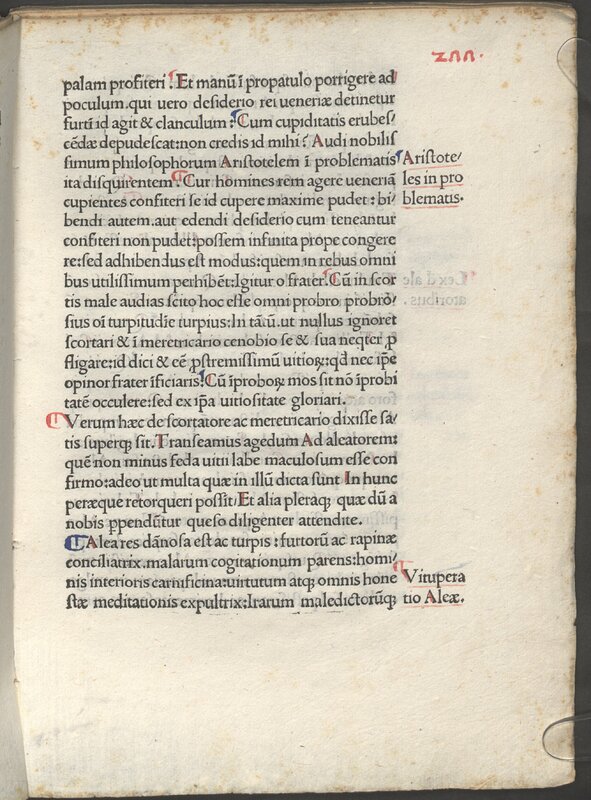 palam profiteri. Et manū ī propatulo porrigere ad
poculum. qui uero desiderio rei ueneriæ detinetur
furtī id agit & clanculum: Cum cupiditatis erubes/
cēdæ depudescat: non credis id mihi? Audi nobilis
simum philosophorum Aristotelem ī problematis
ita disquirentem. Cur homines rem agere ueneriā
cupientes confiteri se id cupere maxime pudet: bi/
bendi autem aut edendi desiderio cum teneantur
confiteri non pudet: possem infinita prope congere
re: sed adhibendus est modus: quem in rebus omni
bus utilissimum perhibēt: Igitur o frater. Cū in scor
tis male audias scito hoc esse omni probro probro/
sius oī turpitudīe turpius: In tātū. ut nullus ignoret
scortari & ī meretricario cenobio se & sua neqter ꝓ
fligare: id dici & eē ꝓstremissimū uitioꝝ: qđ nec ipē
opinor frater īficiaris: Cū īproboꝝ mos sit nō īprobi
tatē occulere: sed ex ipā uitiositate gloriari.
Verum hæc de scortatore ac meretricario dixisse sa/
tis superqꝫ sit. Transeamus agedum Ad aleatorem:
quē non minus feda uitii labe maculosum esse con
firmo: adeo ut multa quæ in illū dicta sunt In hunc
peræque retorqueri possīt: Et alia pleraqꝫ quæ dū a
nobis ꝓpendūtur queso diligenter attendite.
Alea res dānosa est ac turpis: furtorū ac rapinæ
conciliatrix. malarum cogitationum parens: homi/
nis interioris carnificina: uirtutum atqꝫ omnis hone
stæ meditationis expultrix: Irarum maledictorūqꝫ
Aristote/
les in pro
blematis.
Vitupera
tio Aleæ.